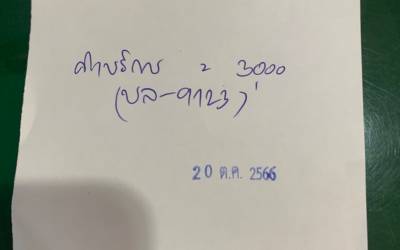 ค่าบริการ = 3000
(บล-9123)
20 ต.ค. 2566